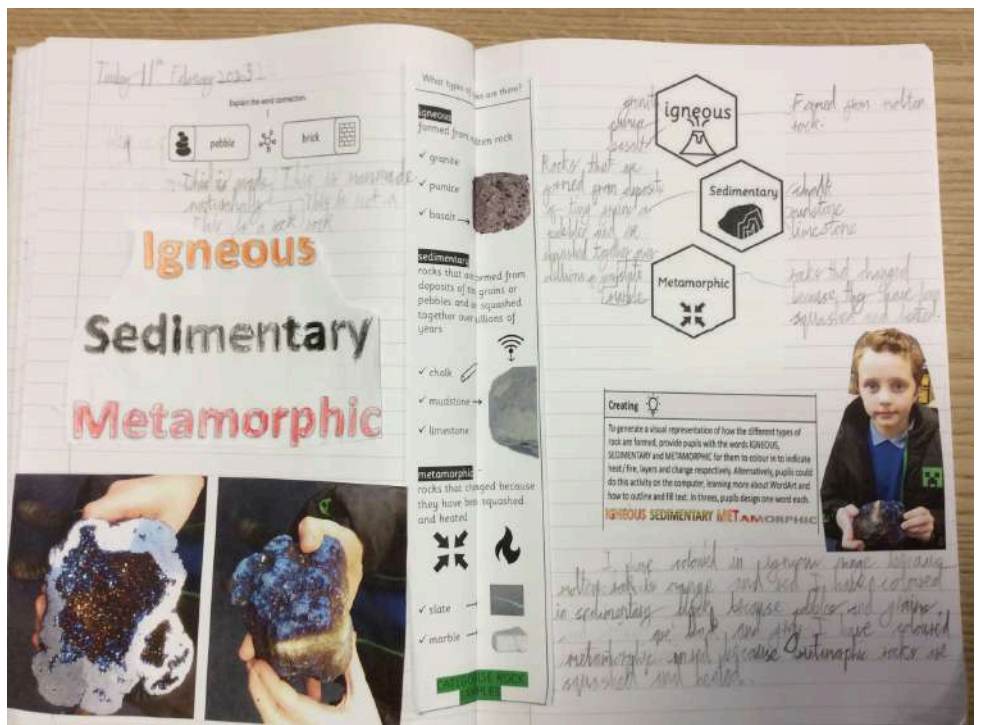 Tuesday 11th February 2025
Explain the word connection.
pebble
brick
This is made This is manmade
naturally This is not a
This is a rock rock
Igneous
Sedimentary
Metamorphic
What types of are there?
igneous
formed from molten rock
✓ granite
✓ pumice
✓ basalt
sedimentary
rocks that are formed from
deposits of grains or
pebbles and squashed
together over millions of
years
✓ chalk
✓ mudstone
✓ limestone
metamorphic
rocks that changed because
they have been squashed
and heated
✓ slate
✓ marble
CATEGORISE ROCK
SAMPLES
granite
pumice
basalt
igneous
Formed from molten
rock.
Rocks that are
formed from deposits
of tiny grains or
pebbles and are
squashed together over
millions of
Sedimentary
chalk
limestone
Metamorphic
rocks that changed
because they have been
squashed and heated.
Creating
To generate a visual representation of how the different types of
rock are formed, provide pupils with the words IGNEOUS,
SEDIMENTARY and METAMORPHIC for them to colour in to indicate
heat/ fire, layers and change respectively. Alternatively, pupils could
do this activity on the computer, learning more about WordArt and
how to outline and fill text. In threes, pupils design one word each.
IGNEOUS SEDIMENTARY METAMORPHIC
I have coloured in because
molten rock is orange and red I have coloured
in sedimentary black because and grains
are black and grey I have coloured
metamorphic in red because rocks are
squashed and heated.